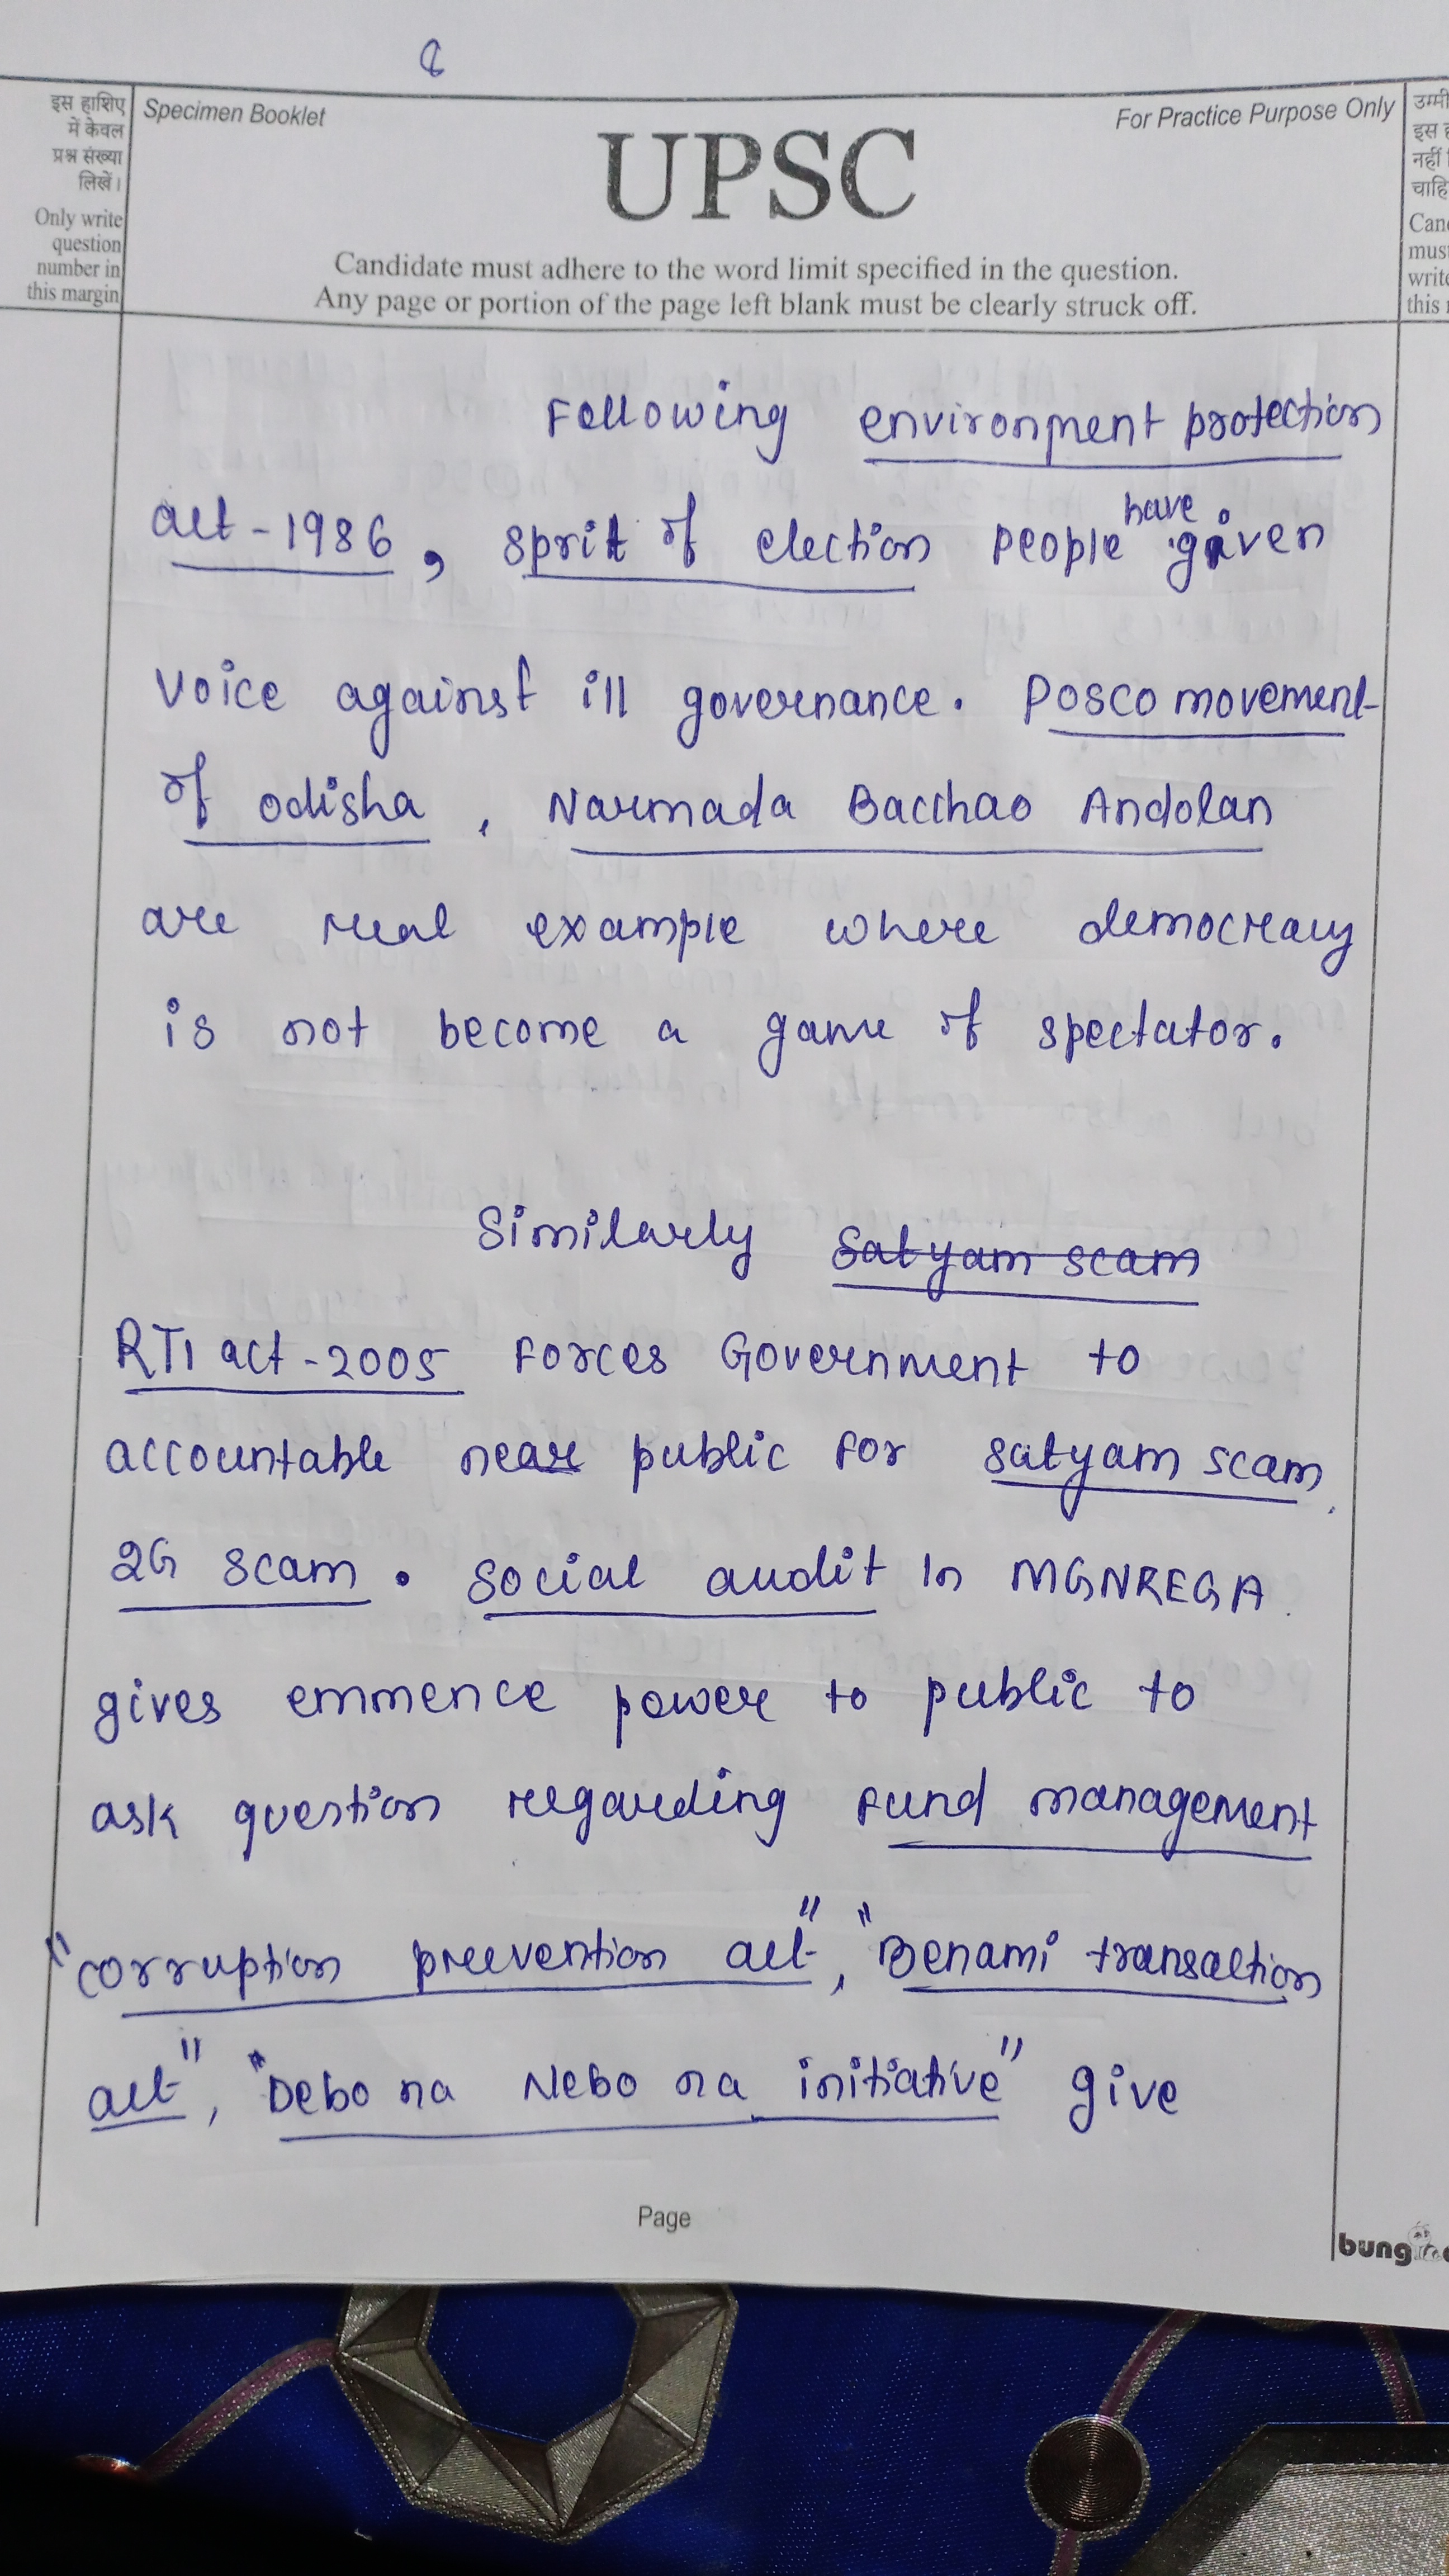 8
इस हाशिए
में केवल
प्रश्न संख्या
लिखें।
Only write
question
number in
this margin
Specimen Booklet
For Practice Purpose Only
UPSC
Candidate must adhere to the word limit specified in the question.
Any page or portion of the page left blank must be clearly struck off.
Following environment protection
act-1986, sprit of election people have given
voice against ill governance. Posco movement
of odisha, Narmada Bacchao Andolan
are real example where democracy
is not become a game of spectator.
Similarly Satyam scam
RTI act-2005 forces Government to
accountable near public for satyam scam,
2G scam. Social audit In MGNREGA
gives emmence power to public to
ask question regarding fund management
"corruption preevention act", "Benami transaction
act", "Debo na Nebo na initiative" give
Page
bung